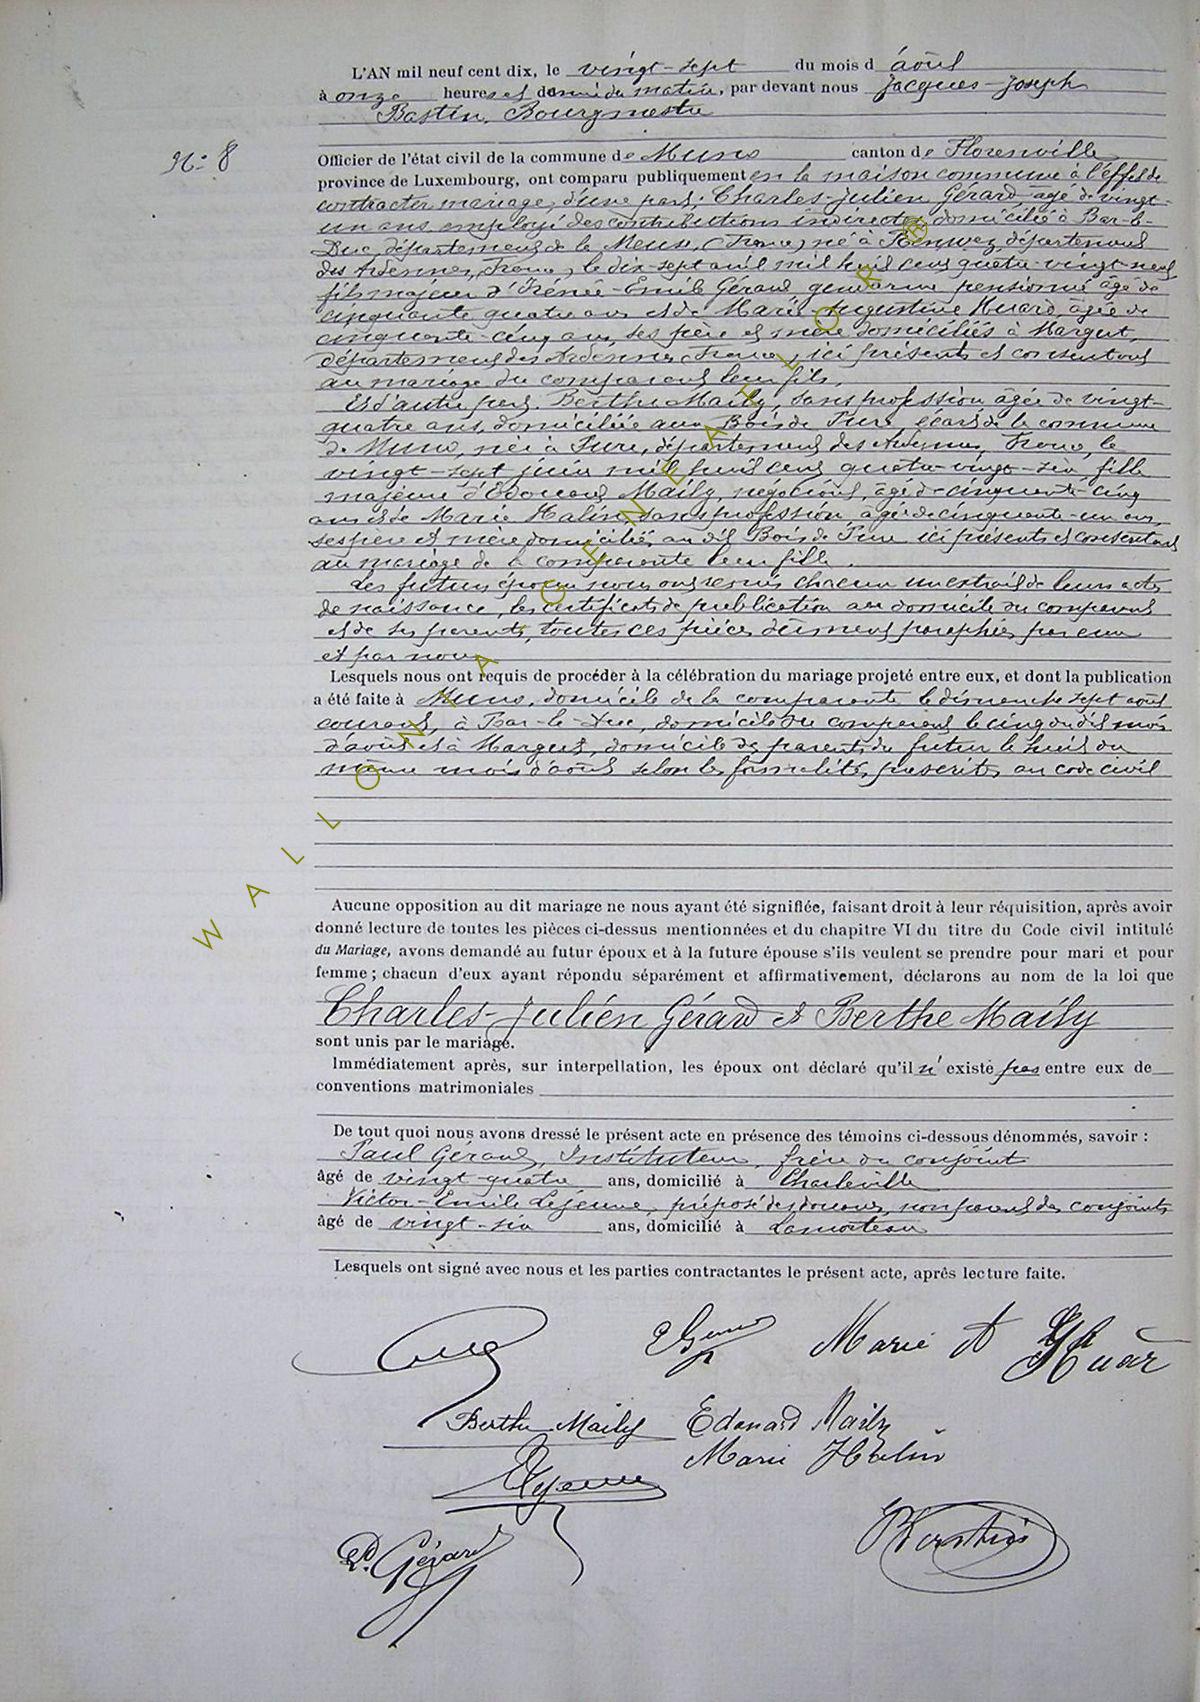 L'AN mil neuf cent dix, le vingt-sept du mois d'août
à onze heures et demie du matin, par devant nous Jacques-Joseph
Bastin, Bourgmestre
N° 8
Officier de l'état civil de la commune de Muno canton de Florenville
province de Luxembourg, ont comparu publiquement en la maison commune à l'effet de
contracter mariage, d'une part: Charles-Julien Gérard âgé de vingt-
un ans, employé des contributions indirectes, domicilié à Bar-le-
Duc, département de la Meuse, (France) né à Renwez, département
des Ardennes, France, le dix-sept avril mil huit cent quatre-vingt-neuf,
fils majeur d'Irénée-Emile Gérard gendarme pensionné âgé de
cinquante quatre ans et de Marie Augustine Huard, âgée de
cinquante-cinq ans, ses père et mère domiciliés à Margut,
département des Ardennes, France, ici présents et consentant
au mariage du comparant leur fils.
Et d'autre part. Berthe Maily, sans profession âgée de vingt-
quatre ans, domiciliée aux Bois de Pure, écart de la commune
de Muno, née à Pure, département des Ardennes, France, le
vingt-sept juin mil huit cent quatre-vingt-six, fille
majeure d'Edouard Maily, négociant, âgé de cinquante-cinq
ans et de Marie Halin, sans profession, âgée de cinquante-un ans,
ses père et mère domiciliés au dit Bois de Pure ici présents et consentant
au mariage de la comparante leur fille.
Les futurs époux nous ont remis chacun un extrait de leurs actes
de naissance, les certificats de publication au domicile du comparant
et de ses parents, toutes ces pièces dûment paraphées par eux
et par nous
Lesquels nous ont requis de procéder à la célébration du mariage projeté entre eux, et dont la publication
a été faite à Muno, domicile de la comparante le dimanche sept août
courant, à Bar-le-Duc, domicile du comparant le cinq du dit mois
d'août et à Margut, domicile des parents du futur le huit du
même mois d'août selon les formalités prescrites au code civil
Aucune opposition au dit mariage ne nous ayant été signifiée, faisant droit à leur réquisition, après avoir
donné lecture de toutes les pièces ci-dessus mentionnées et du chapitre VI du titre du Code civil intitulé
du Mariage, avons demandé au futur époux et à la future épouse s'ils veulent se prendre pour mari et pour
femme ; chacun d'eux ayant répondu séparément et affirmativement, déclarons au nom de la loi que
Charles-Julien Gérard et Berthe Maily
sont unis par le mariage.
Immédiatement après, sur interpellation, les époux ont déclaré qu'il n'existe pas entre eux de
conventions matrimoniales
De tout quoi nous avons dressé le présent acte en présence des témoins ci-dessous dénommés, savoir :
Paul Gérard, Instituteur, frère du conjoint
âgé de vingt-quatre ans, domicilié à Charleville
Victor-Emile Lejeune, préposé des douanes, non parent des conjoints
âgé de vingt-six ans, domicilié à Lamorteau
Lesquels ont signé avec nous et les parties contractantes le présent acte, après lecture faite.
Marie A Huar
Berthe Maily Edouard Maily
Marie Halin
Lejeune
P. Gérard
JJBastin
WALLONIA GENEALOR ®